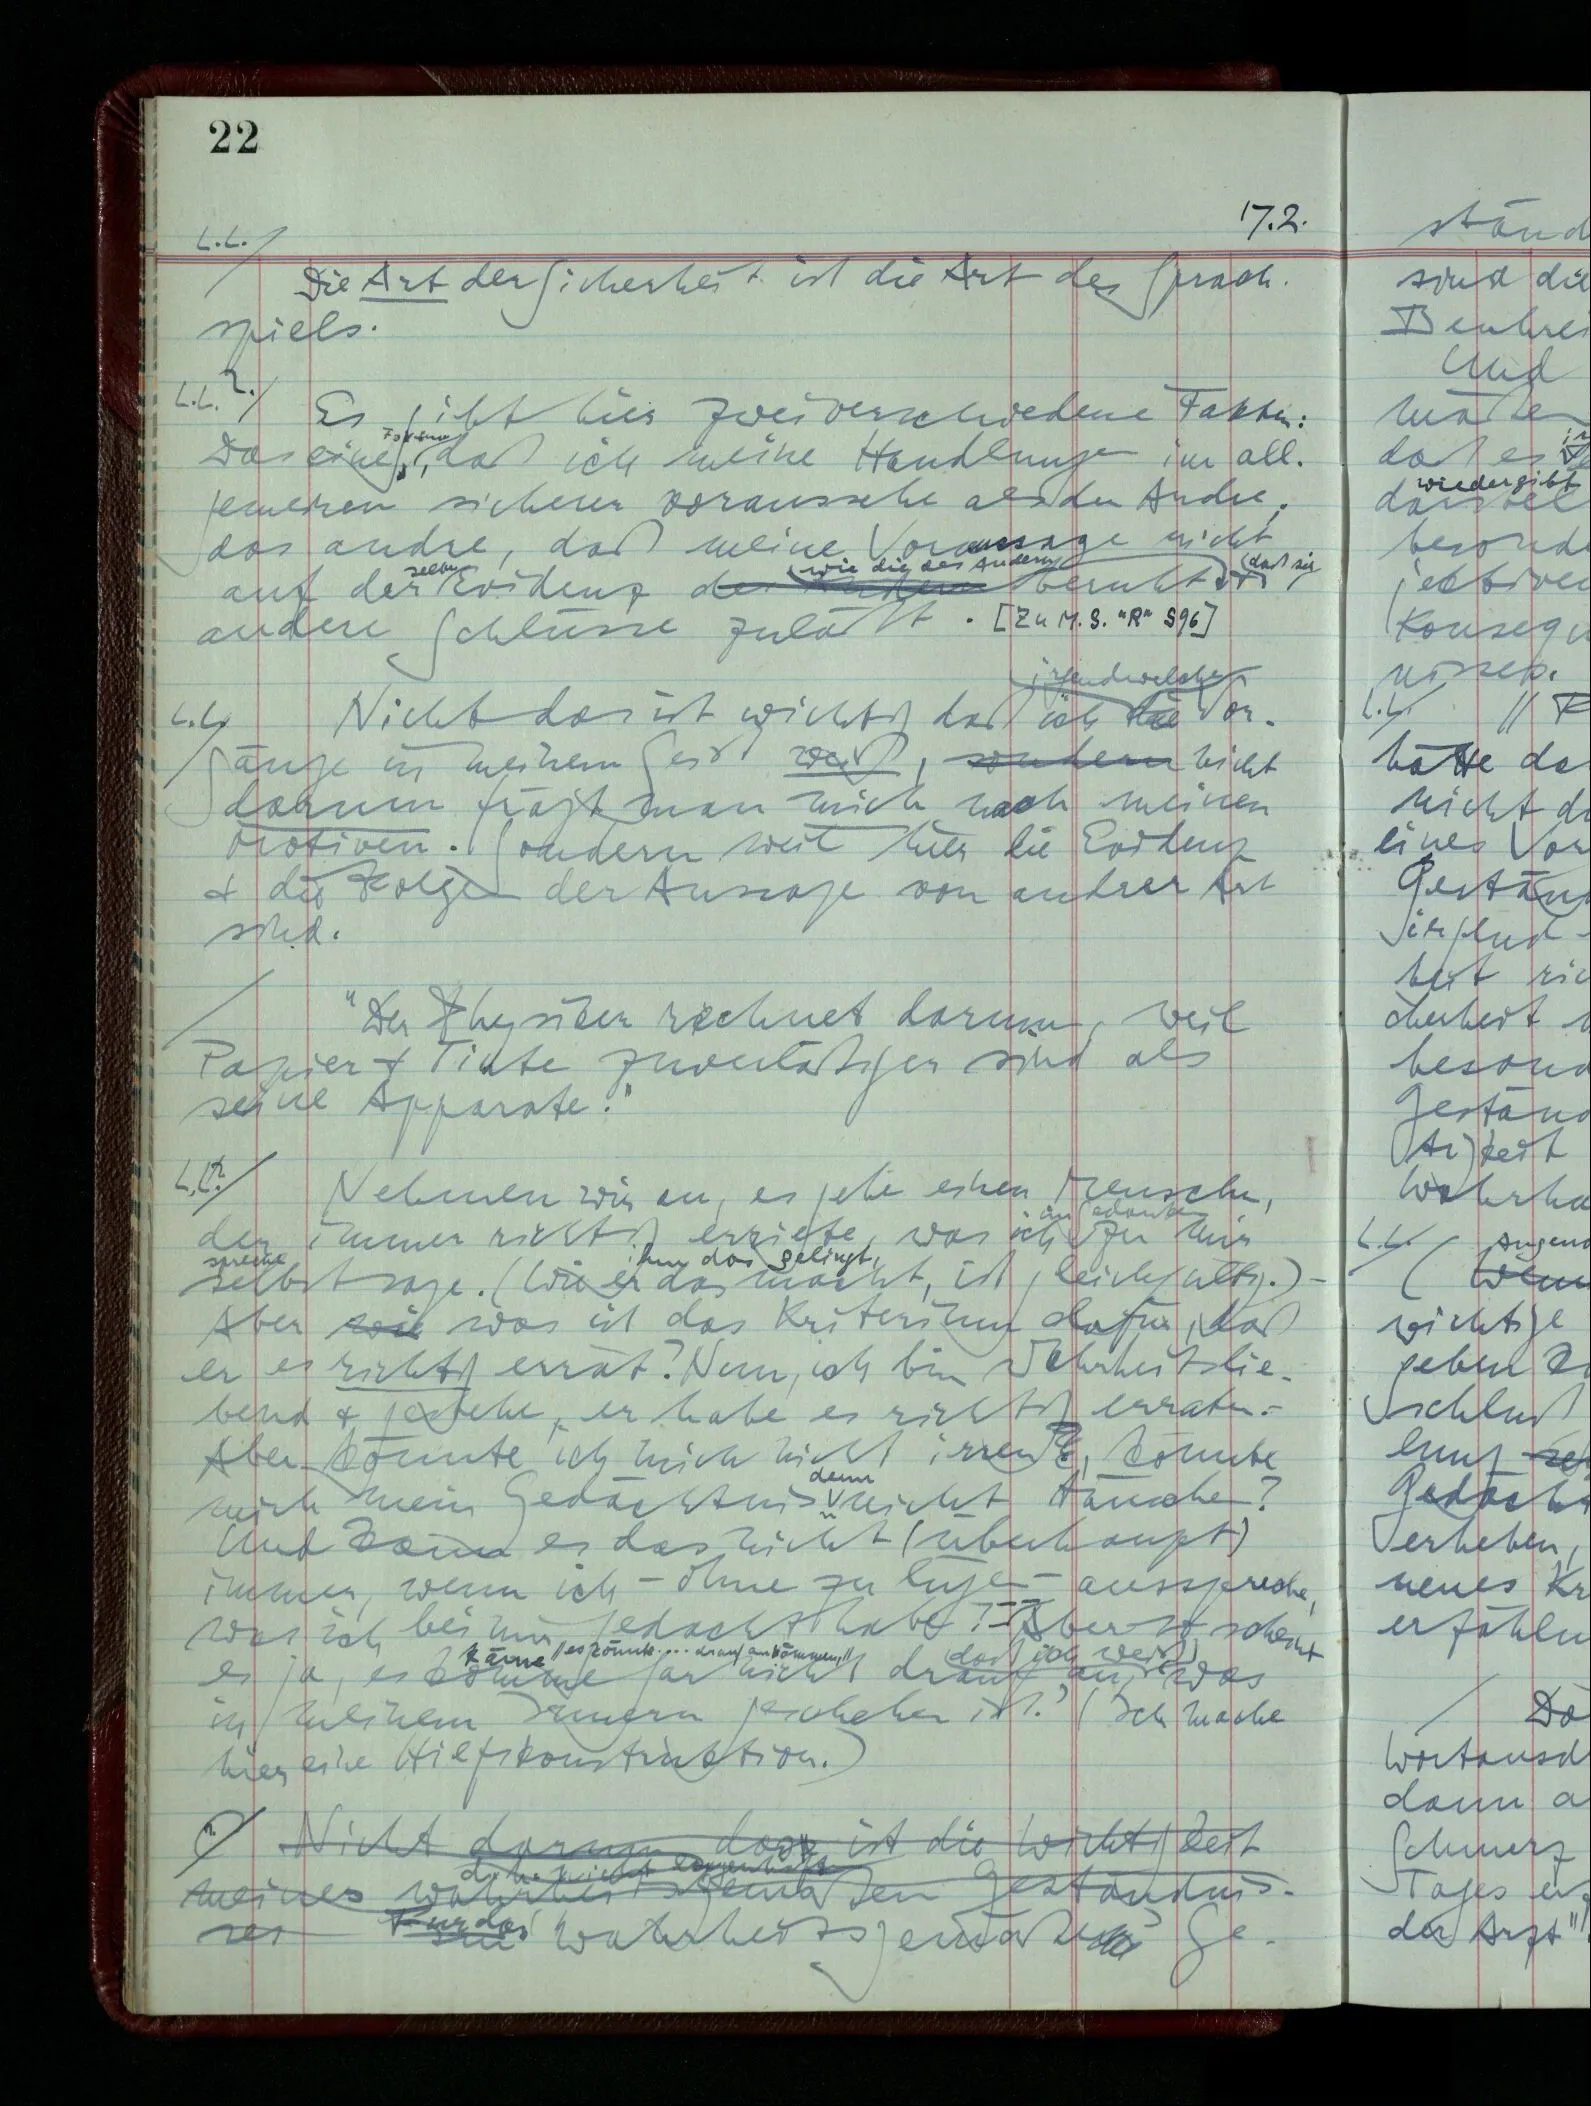 22
17.2.
L.L. /
/ Die Art der Sicherheit ist die Art des Sprach-
spiels.
L.L.?/ Es gibt hier zwei verschiedene Fakten:
Das eine, daß ich meine Handlungen im all-
gemeinen sicherer voraussehe als der Andre;
das andre, daß meine Voraussage nicht
selben wie die des Andern (daß sie
auf der Evidenz des Andern beruht &
andere Schlüsse zuläßt. [Zu M.S. "R" S 96]
irgendwelche
L.L. Nicht das ist wichtig daß ich die Vor-
/ gänge in meinem Geist weiß, sondern nicht
darum frägt man mich nach meinen
Motiven. Sondern weil hier die Evidenz
& die Folgen der Aussage von andrer Art
sind.
/ "Der Physiker rechnet darum, weil
Papier & Tinte zuverläßiger sind als
seine Apparate."
L.L.?/ Nehmen wir an, es gebe einen Menschen,
in Gedanken
der immer richtig erriete, was ich zu mir
spreche ihm das gelingt,
selbst sage. (Wie er das macht, ist gleichgültig.) –
Aber wie was ist das Kriterium dafür, daß
er es richtig errät? Nun, ich bin wahrheitslie-
bend & gestehe, er habe es richtig erraten. –
Aber könnte ich mich nicht irren, könnte
denn
mich mein Gedächtnis nicht täuschen?
Und kann es das nicht (überhaupt)
immer, wenn ich – ohne zu lügen – ausspreche,
was ich bei mir gedacht habe? – – Aber so scheint
käme // es könnte .... drauf ankommen, // daß ich weiß))
es ja, es komme gar nicht drauf an, was
in meinem Innern geschehen ist. (Ich mache
hier eine Hilfskonstruktion.)
?/ Nicht darum ist die Wichtigkeit
d.h. nicht lügenhaft
meines wahrheitsgemäßen Geständnis-
Für das
ses wahrheitsgemäße Ge-
ständ
sind die
Und
wiedergibt
nissen.
L.L. /
hätte da
nicht d
eines Vor
Geständ
irgend-
heit ric
cherheit
besond
Geständ
tigkeit
Wahrha
L.L. /
wichtige
geben
schluß
Gedächt
erheben,
neues Kr
erfühlu
/
Wortausd
dann a
Schmerz
Tages er
der Arzt"